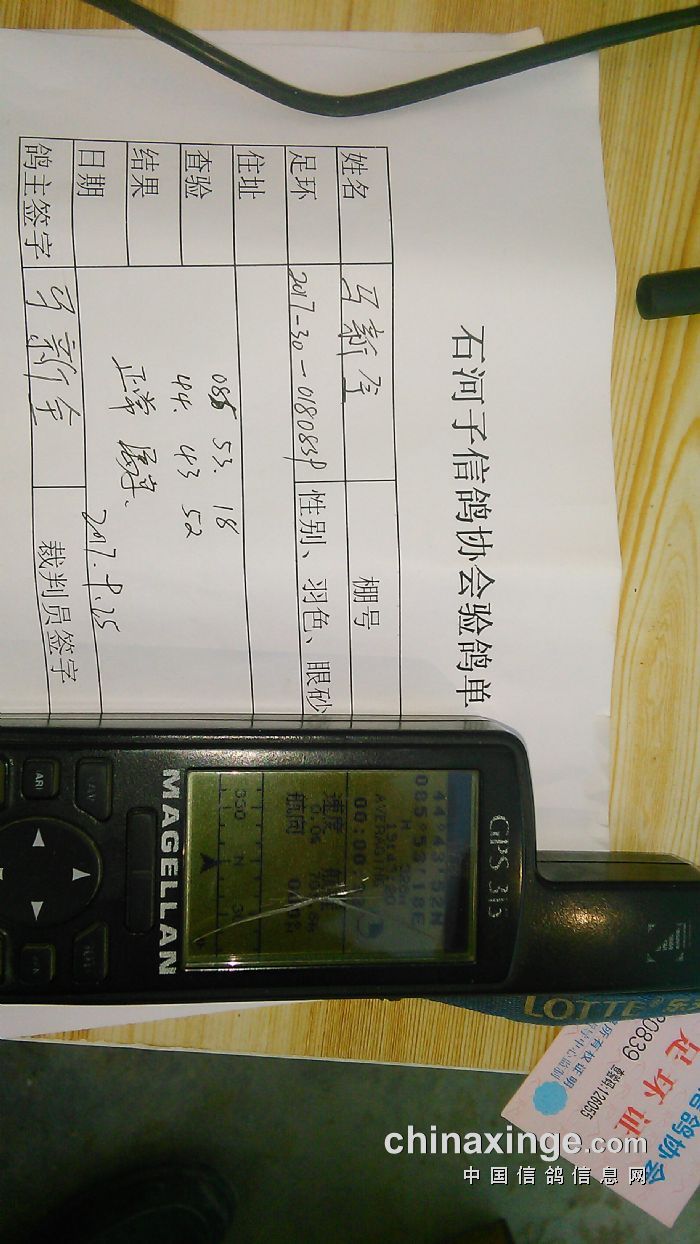 石河子信鸽协会验鸽单
姓名 马新 棚号
足环 2017-30-018083 性别、羽色、眼砂
住址
查验
结果
085 53. 18
44. 43 52
正常
日期 2017. 9. 25
鸽主签字 马新 裁判员签字
GPS 315
44°43'52N
085°53'18E
AVERAGING
00:00
速度
航向
330 N 30
MAGELLAN
LOTTE
足环证
所有权证明
126055
chinaxinge.com
中国信鸽信息网